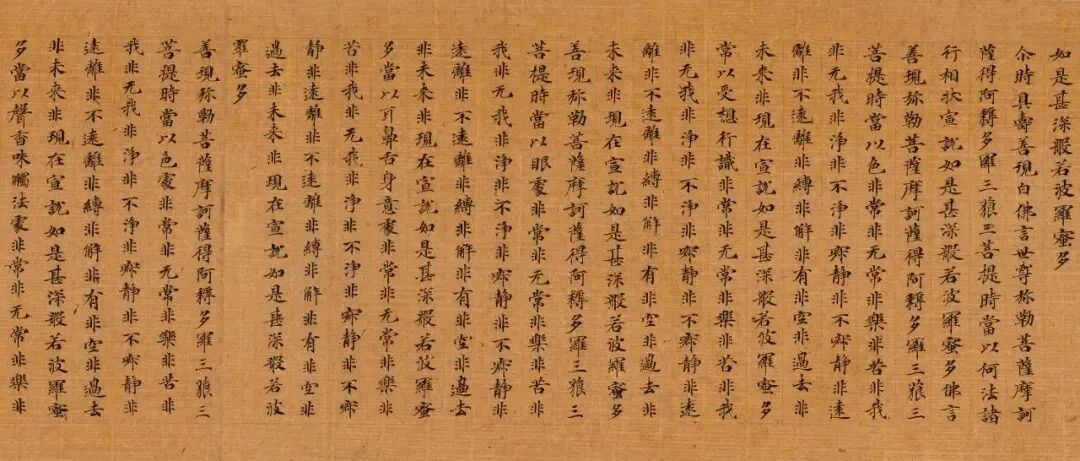 如是甚深般若波羅蜜多
尒時具壽善現白佛言世尊弥勒菩薩摩訶
薩得阿耨多羅三藐三菩提時當以何法諸
行相狀宣說如是甚深般若波羅蜜多佛言
善現弥勒菩薩摩訶薩得阿耨多羅三藐三
菩提時當以色非常非无常非樂非苦非我
非无我非淨非不淨非寂靜非不寂靜非遠
離非不遠離非縛非解非有非空非過去非
未來非現在宣說如是甚深般若波羅蜜多
常以受想行識非常非无常非樂非苦非我
非无我非淨非不淨非寂靜非不寂靜非遠
離非不遠離非縛非解非有非空非過去非
未來非現在宣說如是甚深般若波羅蜜多
善現弥勒菩薩摩訶薩得阿耨多羅三藐三
菩提時當以眼處非常非无常非樂非苦非
我非无我非淨非不淨非寂靜非不寂靜非
遠離非不遠離非縛非解非有非空非過去
非未來非現在宣說如是甚深般若波羅蜜
多當以耳鼻舌身意處非常非无常非樂非
苦非我非无我非淨非不淨非寂靜非不寂
靜非遠離非不遠離非縛非解非有非空非
過去非未來非現在宣說如是甚深般若波
羅蜜多
善現弥勒菩薩摩訶薩得阿耨多羅三藐三
菩提時當以色處非常非无常非樂非苦非
我非无我非淨非不淨非寂靜非不寂靜非
遠離非不遠離非縛非解非有非空非過去
非未來非現在宣說如是甚深般若波羅蜜
多當以聲香味觸法處非常非无常非樂非